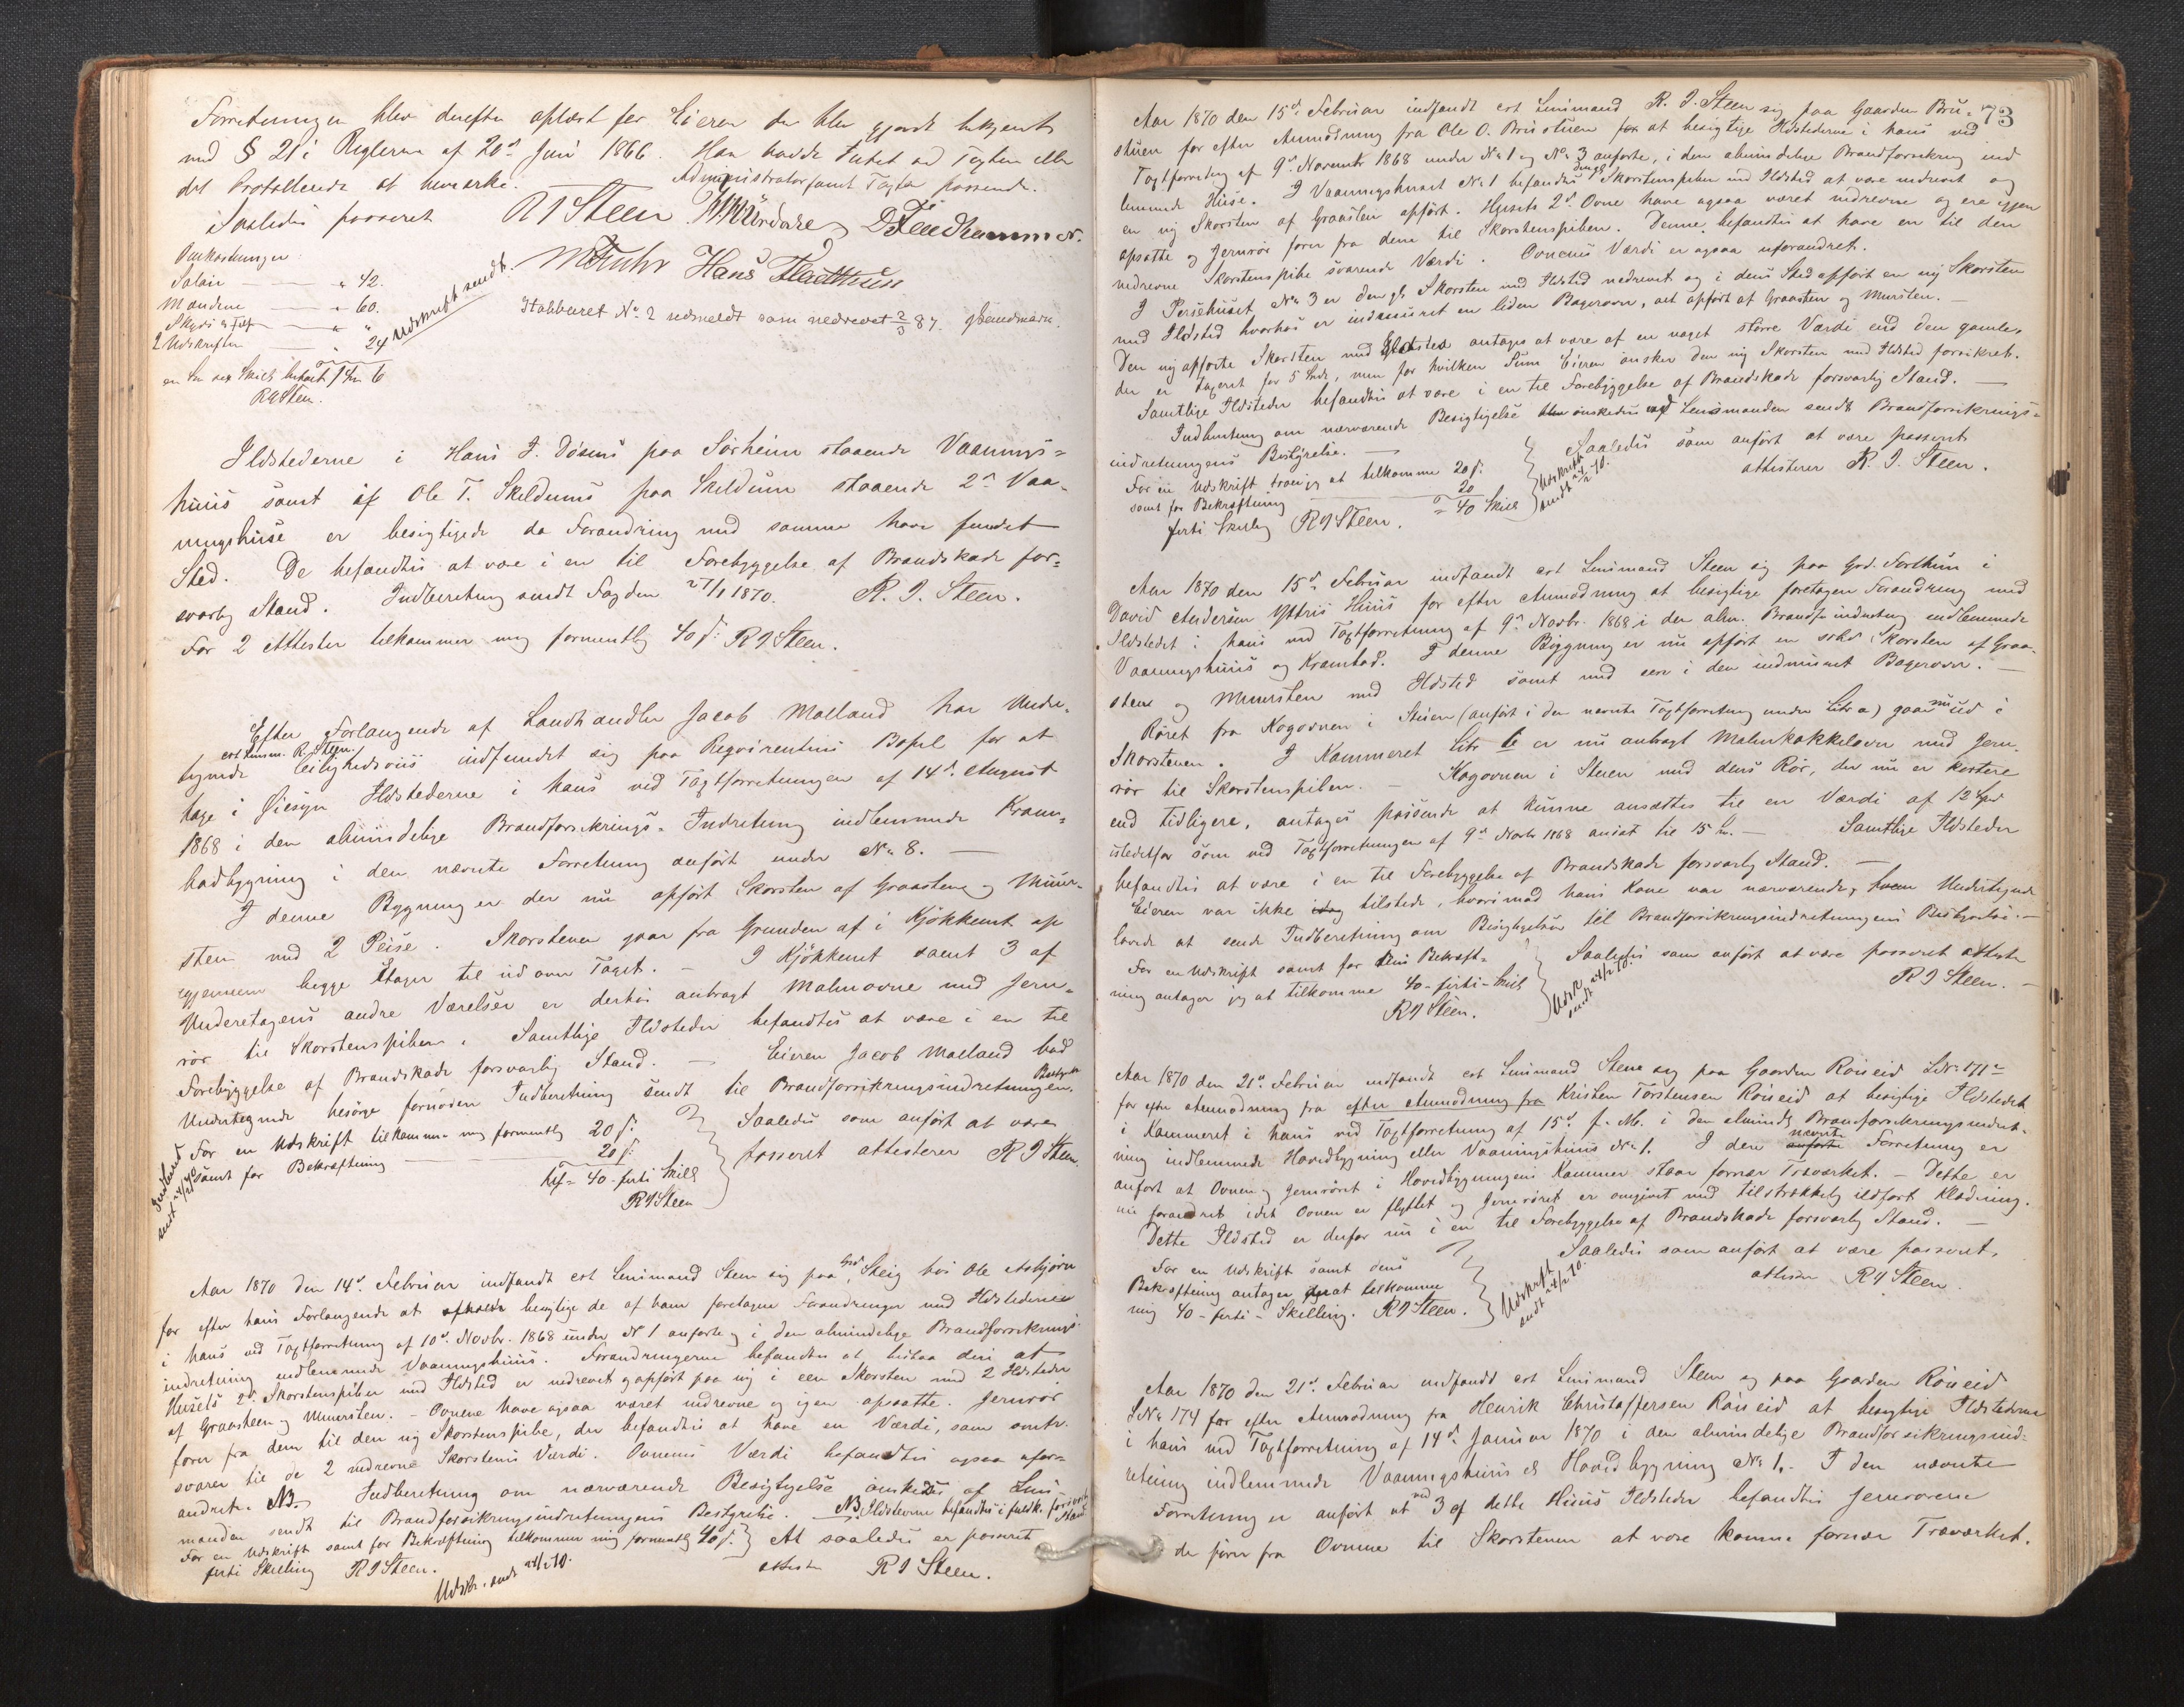 Forretningen blev derefter oplæst for Eieren der blev gjort bekjendt
med § 21 i Reglerne af 20de Juni 1866. Han havde Intet ved Taxten eller
det Protokllerede at bemærke. Administrator fandt Taxten passende.
Saaledes passeret R I Steen D Fændhammer.
M Fuhr Hans Flatthuus
Omkostninger:
Salair — " 42.
Mændene — " 60.
Skyds — " "
2 Udskrifter — " 24
Udskrift sendt.
en Spd sex Skill. betalt 1 Spd 6
R I Steen.
Stabburet No 2 udmeldt som nedrevet 2/3 87.
Ildstederne i Hans J. Døsens paa Sørheim staaende Vaanings=
huus samt af Ole T. Skeldums paa Skeldum staaende 2de Vaa=
ningshuse er besigtigede da Forandring med samme have fundet
Sted. De befandtes at være i en til Forebyggelse af Brandskade for=
svarlig Stand. Indberetning sendt Fogden 27/1 1870. R. I. Steen.
For 2 Attester tilkommer mig formentlig 40 s: R I Steen.
Efter Forlangende af Landhandler Jacob Molland har Under=
tegnede const Lensm. R. Steen leilighedsviis indfundet sig paa Reqvirentens Bopæl for at
tage i Øiesyn Ildstederne i hans ved Taxtforretningen af 14de August
1868 i den almindelige Brandforsikrings-Indretning indlemmede Kram=
bodbygning i den nævnte Forretning anført under No 8. —
I denne Bygning er der nu opført Skorsten af Graasten og Muur=
sten med 2 Peise. Skorstenen gaar fra Grunden af i Kjøkkenet op
igjennem begge Etager til ud over Taget. — I Kjøkkenet samt 3 af
Underetagens andre Værelser er derhos anbragt Malmovne med Jern=
rør til Skorstenspiben. Samtlige Ildsteder befandtes at være i en til
Forebyggelse af Brandskade forsvarlig Stand. — Eieren Jacob Molland bad
Undertegnede besørge fornøden Indberetning sendt til Brandforsikringsindretningens Bestyrelse
For en Udskrift tilkommer mig formentlig 20 s:
samt for Bekræftning 20 s:
40 - firti Skill
R I Steen
Saaledes som anført at være
passeret attesterer R I Steen
Aar 1870 den 14de Februar indfandt const Lensmand Steen sig paa Grd. Steig hos Ole Asbjørn
for efter hans Forlangende at besigtige de af ham foretagne Forandringer med Ildstederne
i hans ved Taxtforretning af 10de Novbr. 1868 under No 1 anførte og i den almindelige Brandforsikrings=
indretning indlemmede Vaaningshuus. Forandringerne befandtes at bestaa deri at
Husets 2de Skorstenspiber med Ildsted er nedrevet og opført paa ny i een Skorsten med 2 Ildsteder
af Graasteen og Muursten. — Ovnene have ogsaa været nedrevne og igjen opsatte. Jernrør
fører fra dem til den ny Skorstenspibe, der befandtes at have en Værdi, som omtr.
svarer til de 2 nedrevne Skorstens Værdi. Ovnenes Værdi befandtes ogsaa ufor=
andret. NB. Indberetning om nærværende Besigtigelse ønskedes af Lens=
manden sendt til Brandforsikringsindretningens Bestyrelse. NB, Ildstederne befandtes i fuldk. forsvarlig Stand
For en Udskrift samt for Bekræftning tilkommer mig formentlig 40 s.
firti Skilling R I Steen.
At saaledes er passeret
attester R I Steen.
Udskr. sendt 24/2 70.
73
Aar 1870 den 15de Februar indfandt const Lensmand R. I. Steen sig paa Gaarden Bru=
stuen for efter Anmodning fra Ole O. Brustuen at besigtige Ildstederne i hans ved
Taxtforretning af 9de Novembr 1868 under No 1 og No 3 anførte, i den almindelige Brandforsikring ind=
lemmede Huse. I Vaaningshuset No 1 befandtes Skorstenspiben med Ildsted at være nedrevet og
en ny Skorsten af Graasten opført. Husets 2de Ovne have ogsaa været nedrevne og ere igjen
opsatte og Jernrør fører fra dem til Skorstenspiben. Denne befandtes at have en til den
nedrevne Skorstenspibe svarende Værdi. Ovnenes Værdi er ogsaa uforandret.
I Persehuset No 3 er den gl. Skorsten med Ildsted nedrevet og i dens Sted opført en ny Skorsten
med Ildsted hvorhos er indmuret en liden Bagerovn, alt opført af Graasten og Mursten. —
Den ny opførte Skorsten med Ildsted antages at være af en noget større Værdi end den gamle,
der er taxeret for 5 Spd, men for hvilken Sum Eieren ønsker den ny Skorsten med Ildsted forsikret.
Samtlige Ildsteder befandtes at være i en til Forebyggelse af Brandskade forsvarlig Stand. —
Indberetning om nærværende Besigtigelse ønskedes ved Lensmanden sendt Brandforsikrings=
indretningens Bestyrelse. —
For en Udskrift troer jeg at tilkomme 20 s.
samt for Bekræftning 20
= 40 Skill
firti Skilling R I Steen.
Udskrift
sendt 24/2 70.
Saaledes som anført at være passeret
attesterer R. I. Steen.
Aar 1870 den 15de Februar indfandt const Lensmand Steen sig paa Grd. Forthun i
David Andersen Yttris Huus for efter Anmodning at besigtige foretagen Forandring med
Ildstedet i hans ved Taxtforretning af 9de Novbr. 1868 i den alm. Brandfs indretning indlemmede
Vaaningshuus og Krambod. I denne Bygning er nu opført en solid Skorsten af Graa=
sten og Muursten med Ildsted samt med en i den indmuret Bagerovn. —
Røret fra Kogovnen i Stuen (anført i den nævnte Taxtforretning under Litr a) gaar nu ud i
Skorstenen. I Kammeret Litr b er nu anbragt Malmkakkelovn med Jern=
rør til Skorstenspiben. — Kogovnen i Stuen med dens Rør, der nu er kortere
end tidligere, antages passende at kunne ansættes til en Værdi af 12 Spd
istedetfor som ved Taxtforretningen af 9de Novbr 1868 ansat til 15 Spd. — Samtlige Ildsteder
befandtes at være i en til Forebyggelse af Brandskade forsvarlig Stand. —
Eieren var ikke idag tilstede, hvorimod hans Kone var nærværende, Undertegnede
lovede at sende Indberetning om Besigtigelsen til Brandforsikringsindretningens Bestyrelse. —
For en Udskrift samt for dens Bekræft=
ning antager jeg at tilkomme 40 - firti - Skill
R I Steen.
Udskr.
sendt 24/2 70.
Saaledes som anført at være passeret attester
R I Steen. —
Aar 1870 den 21de Februar indfandt const Lensmand Steen sig paa Gaarden Røneid LNo 171
for efter Anmodning fra efter Anmodning fra Kristen Torstensen Røneid at besigtige Ildstedet
i Kammeret i hans ved Taxtforretning af 15de f. M. i den almindl Brandforsikringsindret=
ning indlemmede Hovedbygning eller Vaaningshuus No 1. I den anførte nævnte Forretning er
anført at Ovnen og Jernrøret i Hovedbygningens Kammer staar fornær Træværket. — Dette er
nu forandret idet Ovnen er flyttet og Jernrøret er omgivet med tilstrækkelig ildfast Klædning.
Dette Ildsted er derfor nu i en til Forebyggelse af Brandskade forsvarlig Stand. —
For en Udskrift samt dens
Bekræftning antager jeg at tilkomme
mig 40 - firti - Skilling. R I Steen.
Udskrift
sendt 24/2 70.
Saaledes som anført at være passeret,
attester R I Steen
Aar 1870 den 21de Februar indfandt const Lensmand Steen sig paa Gaarden Røneid
LNo 174 for efter Anmodning fra Henrik Christoffersen Røneid at besigtige Ildstederne
i hans ved Taxtforretning af 14de Januar 1870 i den almindelige Brandforsikringsind=
retning indlemmede Vaaningshuus el Hovedbygning No 1. — I den nævnte
Forretning er anført at ved 3 af dette Huus Ildsteder befandtes Jernrørene
der fører fra Ovnene til Skorstenen at være komne fornær Træværket.